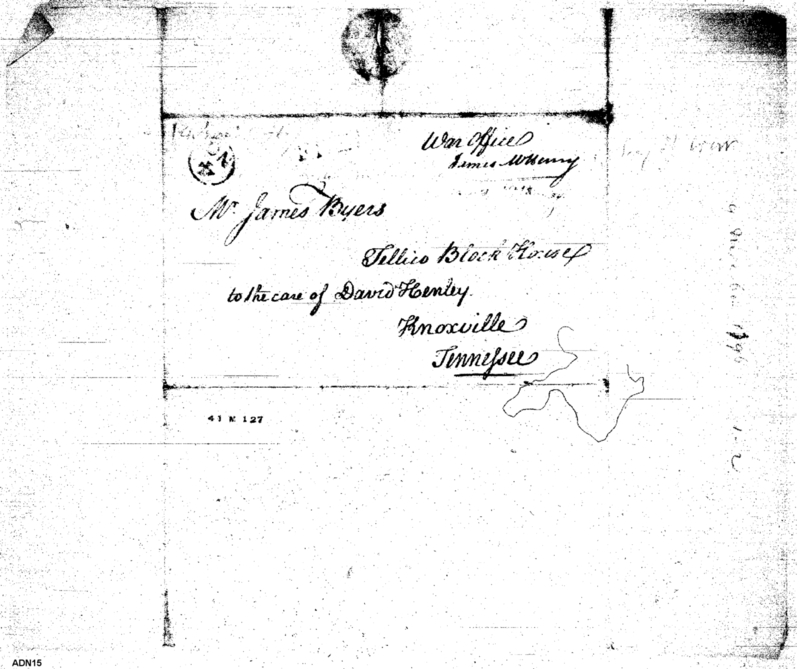 War Office
James McHenry
Mr. James Byers
Tellico Block House
to the care of David Henley.
Knoxville
Tennessee
41 M 127
ADN15